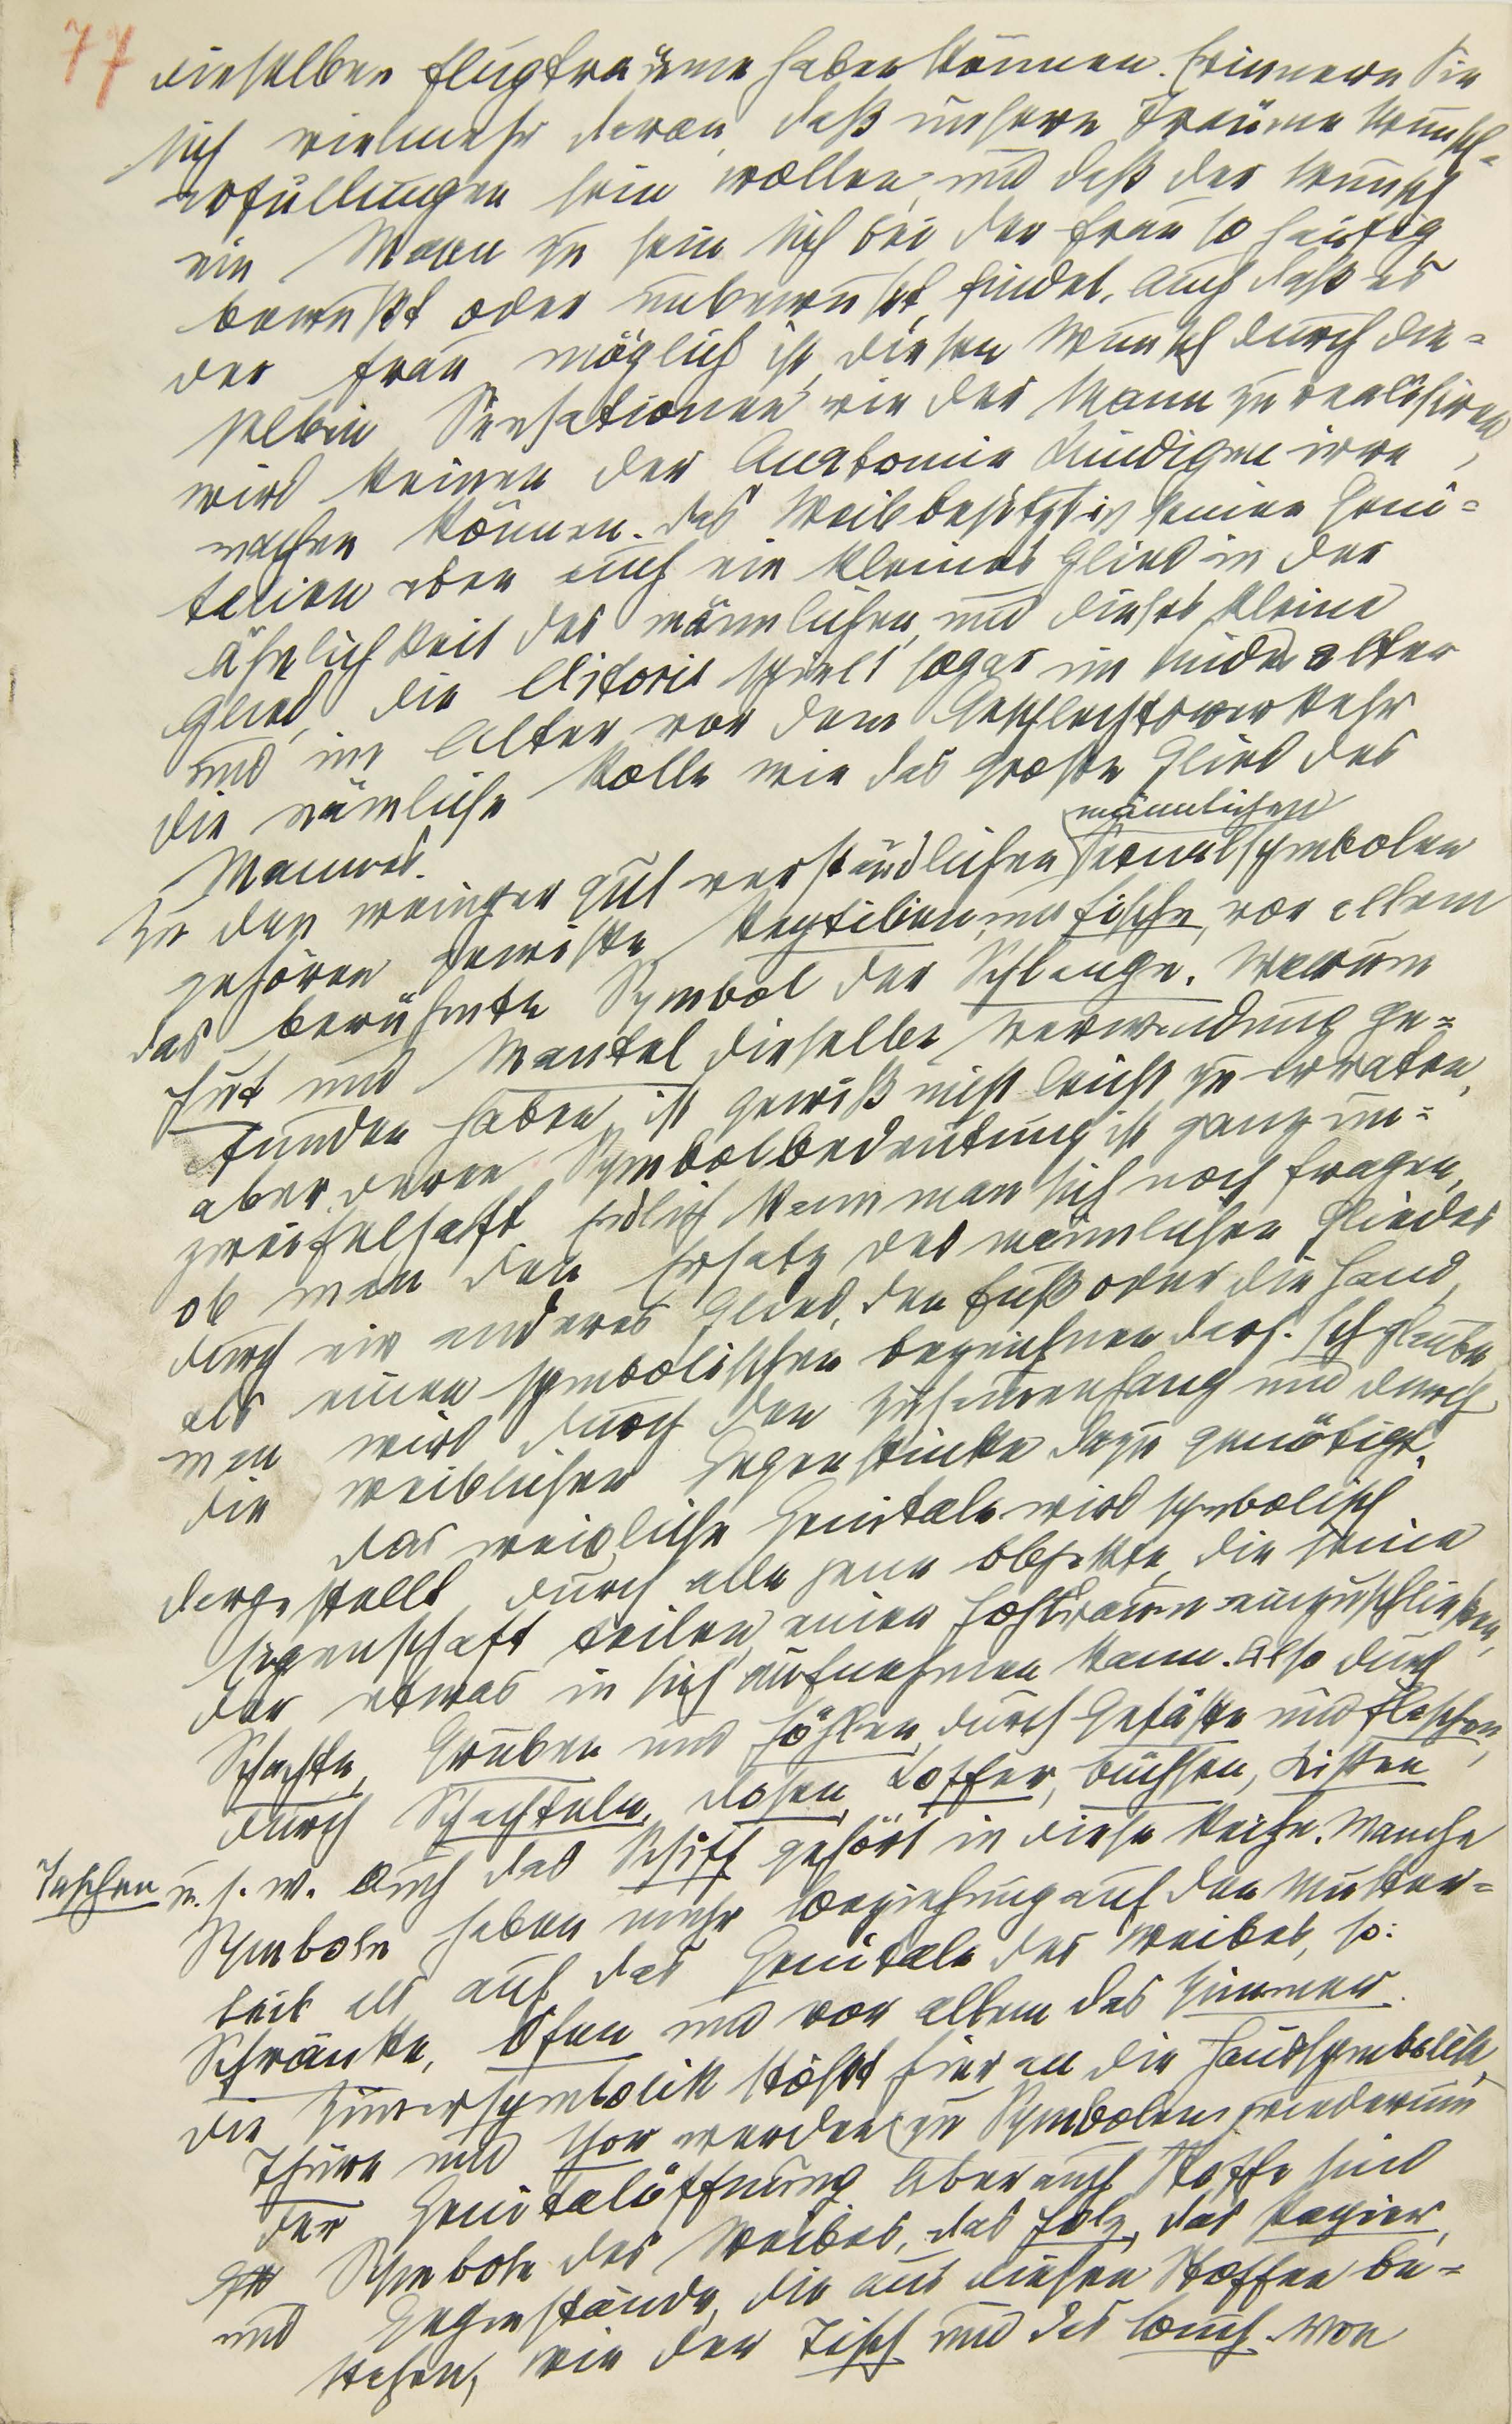 77
dieselben Flugträume haben können. Erinnern Sie
sich vielmehr daran, daß unsere Träume Wunsch-
erfüllungen sein wollen, und daß der Wunsch
ein Mann zu sein sich bei der Frau so häufig
bewußt oder unbewußt findet. Auch daß es
der Frau möglich ist, diesen Wunsch durch die-
selben Sensationen wie der Mann zu realisiren,
wird keinen der Anatomie Kundigen irre
machen können. Das Weib besitzt in seinen Geni-
talien eben auch ein kleines Glied in der
Ähnlichkeit des männlichen, und dieses kleine
Glied, die Clitoris spielt sogar im Kindesalter
und im Alter vor dem Geschlechtsverkehr
die nämliche Rolle wie das große Glied des
Mannes.
männlichen
Zu den weniger gut verständlichen Sexualsymbolen
gehören gewisse Reptilien und Fische, vor allem
das berühmte Symbol der Schlange. Warum
Hut und Mantel dieselbe Verwendung ge=
funden haben, ist gewiß nicht leicht zu erraten,
aber deren Symbolbedeutung ist ganz un=
zweifelhaft. Endlich kann man sich noch fragen,
ob man den Ersatz des männlichen Gliedes
durch ein anderes Glied, den Fuß oder die Hand,
als einen symbolischen bezeichnen darf. Ich glaube,
man wird durch den Zusammenhang und durch
die weiblichen Gegenstücke dazu genötigt.
Das weibliche Genitale wird symbolisch
dargestellt durch alle jene Objekte, die seine
Eigenschaft teilen, einen Hohlraum einzuschließen,
der etwas in sich aufnehmen kann. Also durch
Schachte, Gruben und Höhlen, durch Gefäße und Flaschen,
durch Schachteln, Dosen, Koffer, Büchsen, Kisten
Taschen u. s. w. Auch das Schiff gehört in diese Reihe. Manche
Symbole haben mehr Beziehung auf den Mutter=
leib als auf das Genitale des Weibes, so:
Schränke, Öfen und vor allem das Zimmer.
Die Zimmersymbolik stößt hier an die Haussymbolik,
Thüre und Thor werden zu Symbolen wiederum
der Genitalöffnung. Aber auch Stoffe sind
Symbole des Weibes, das Holz, das Papier,
und Gegenstände, die aus diesen Stoffen be=
stehen, wie der Tisch und das Buch. Von